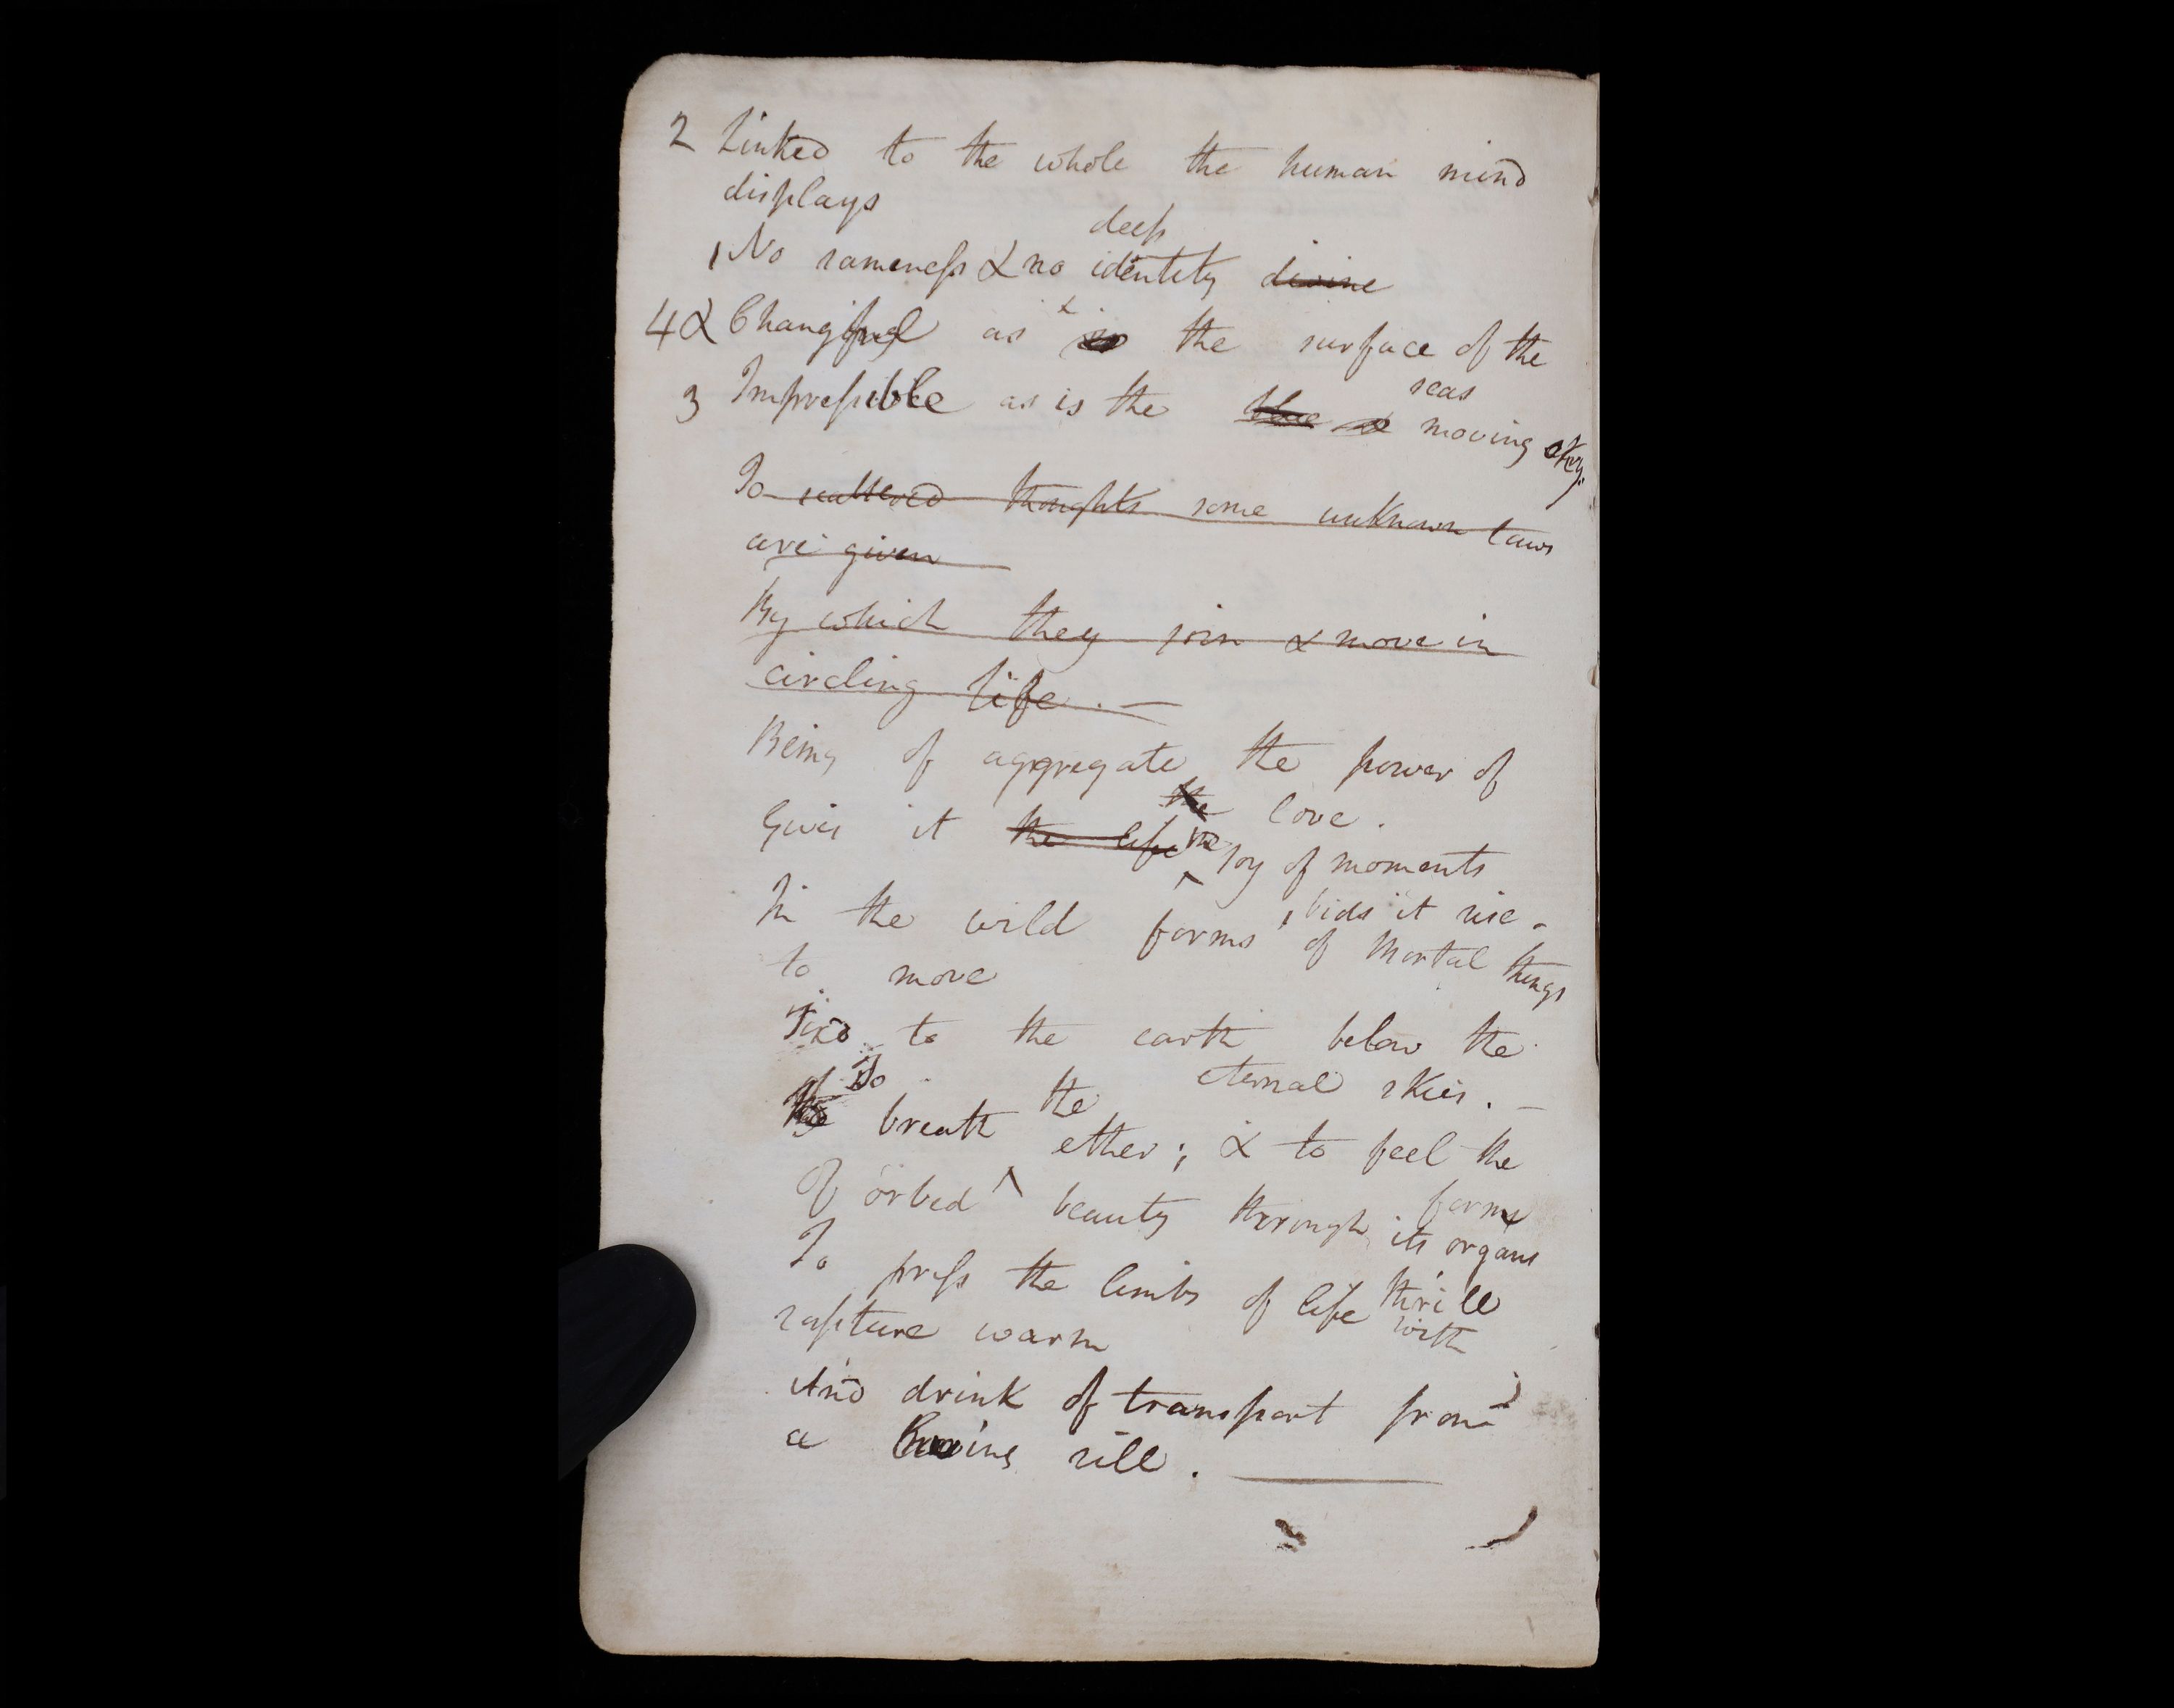 2 Linked to the whole the human mind
displays
deep
1 No sameness & no identity divine
4 & Changeful as is the surface of the
seas
3 Impressible as is the blue moving sky.
To scattered thoughts some unknown laws
are given
By which they join & move in
circling life. —
Being of aggregate the power of
the love.
Gives it the life the joy of moments
, bids it rise -
In the wild forms of mortal things
to move
Fixd to the earth below the
eternal skies. —
To breath the ether; & to feel the
forms
Of orbed ^ beauty through its organs
thrill
To press the limbs of life with
rapture warm
And drink of transport from
a living rill. —